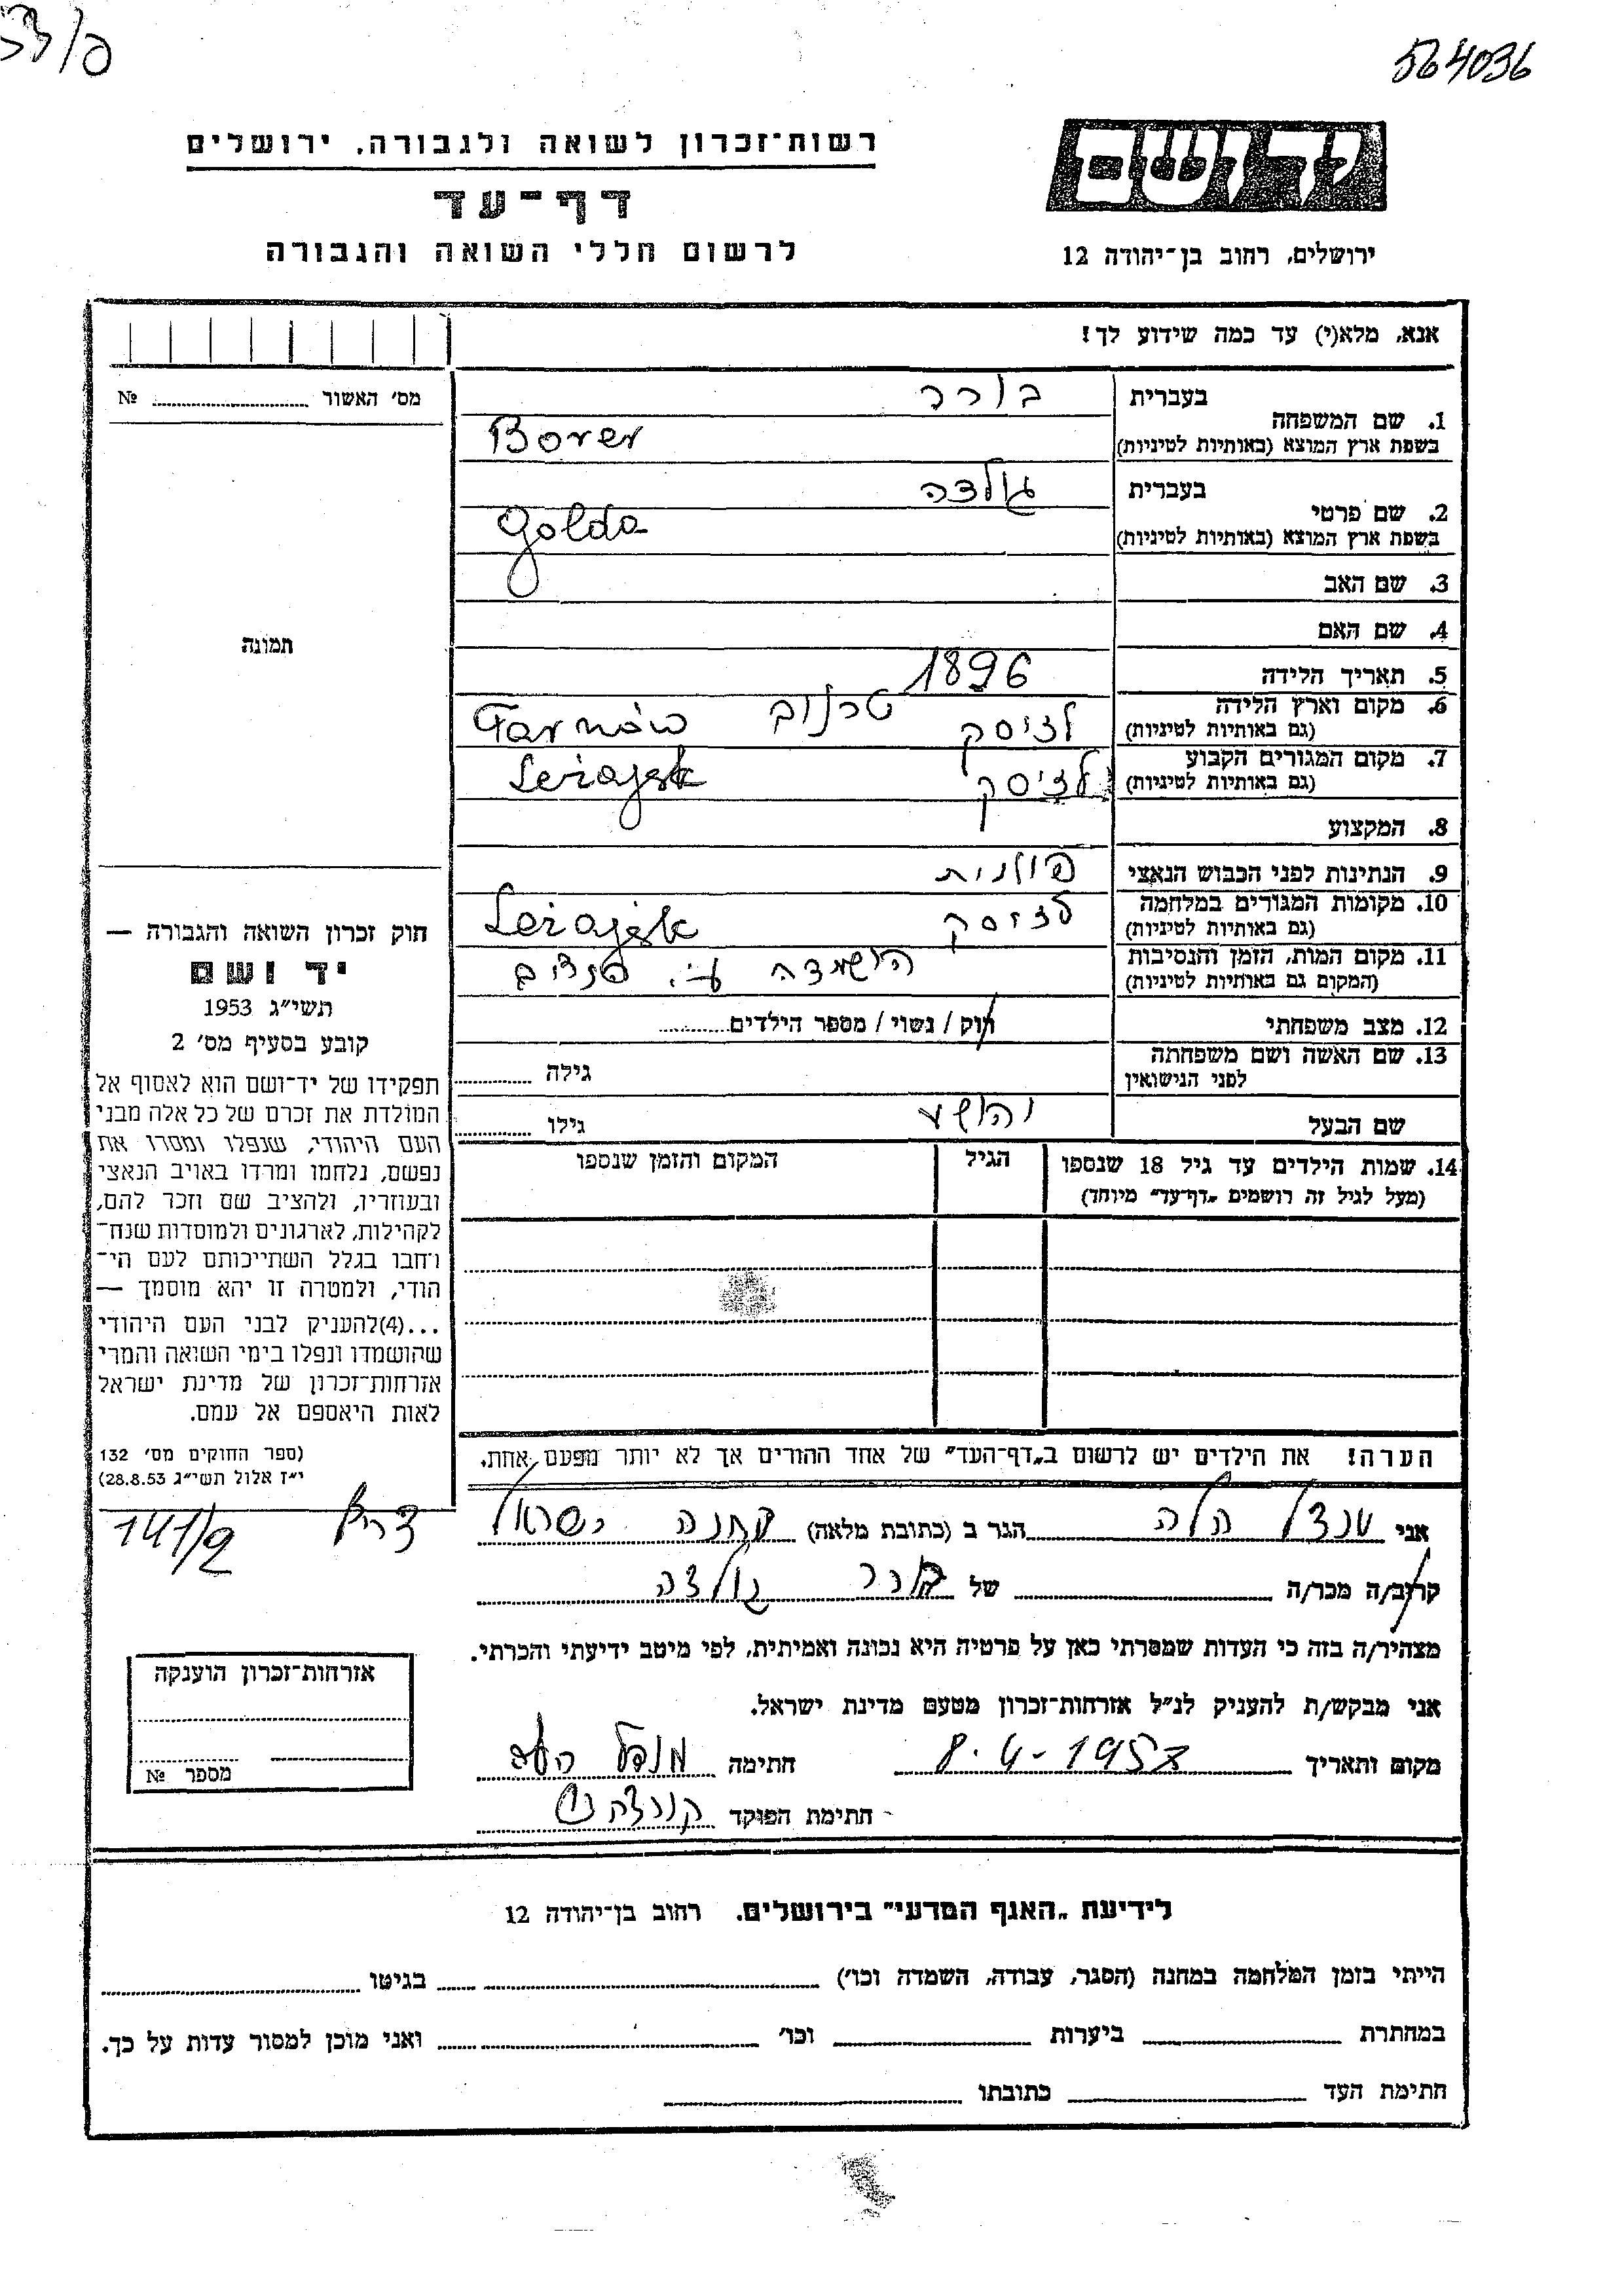 564036
רשות־זכרון לשואה ולגבורה, ירושלים
דף־עד
לרשום חללי השואה והגבורה
ידושם
ירושלים, רחוב בן־יהודה 12
אנא, מלא(י) עד כמה שידוע לך!
מס׳ האשור ........ №
תמונה
חוק זכרון השואה והגבורה —
יד ושם
תשי״ג 1953
קובע בסעיף מס׳ 2
תפקידו של יד־ושם הוא לאסוף אל
המולדת את זכרם של כל אלה מבני
העם היהודי, שנפלו ומסרו את
נפשם, נלחמו ומרדו באויב הנאצי
ובעוזריו, ולהציב שם וזכר להם,
לקהילות, לארגונים ולמוסדות שנח־
רחבו בגלל השתייכותם לעם הי־
הודי, ולמטרה זו יהא מוסמך —
...(4)להעניק לבני העם היהודי
שהושמדו ונפלו בימי השואה והמרי
אזרחות־זכרון של מדינת ישראל
לאות היאספם אל עמם.
(ספר החוקים מס׳ 132
י״ז אלול תשי״ג 28.8.53)
141/2
1. שם המשפחה בעברית בורר
בשפת ארץ המוצא (באותיות לטיניות) Borer
2. שם פרטי בעברית גולדה
בשפת ארץ המוצא (באותיות לטיניות) Golda
3. שם האב
4. שם האם
5. תאריך הלידה 1896
6. מקום וארץ הלידה (גם באותיות לטיניות) לזיסק טרנוב Tarnów
7. מקום המגורים הקבוע (גם באותיות לטיניות) לזיסק Leżajsk
8. המקצוע
9. הנתינות לפני הכבוש הנאצי פולנית
10. מקומות המגורים במלחמה (גם באותיות לטיניות) לזיסק Leżajsk
11. מקום המות, הזמן והנסיבות (המקום גם באותיות לטיניות) הושמדה ע״י
12. מצב משפחתי רוק / נשוי / מספר הילדים........
13. שם האשה ושם משפחתה לפני הנישואין גילה ........
שם הבעל יהושע גילו ........
14. שמות הילדים עד גיל 18 שנספו הגיל המקום והזמן שנספו
(מעל לגיל זה רושמים „דף־עד״ מיוחד)
הערה! את הילדים יש לרשום ב„דף־העד״ של אחד ההורים אך לא יותר מפעם אחת.
אני מנדל הלה הגר ב (כתובת מלאה) מחנה ישראל
קרוב/ה מכר/ה ........ של בורר גולדה
מצהיר/ה בזה כי העדות שמסרתי כאן על פרטיה היא נכונה ואמיתית, לפי מיטב ידיעתי והכרתי.
אני מבקש/ת להעניק לנ״ל אזרחות־זכרון מטעם מדינת ישראל.
מקום ותאריך 8.4-1957 חתימה מנדל הלה
חתימת הפוקד
אזרחות־זכרון הוענקה
מספר №
לידיעת „האגף המדעי״ בירושלים, רחוב בן־יהודה 12
הייתי בזמן המלחמה במחנה (הסגר, עבודה, השמדה וכו׳) ........ בגיטו ........
במחתרת ........ ביערות ........ וכו׳ ........ ואני מוכן למסור עדות על כך.
חתימת העד ........ כתובתו ........